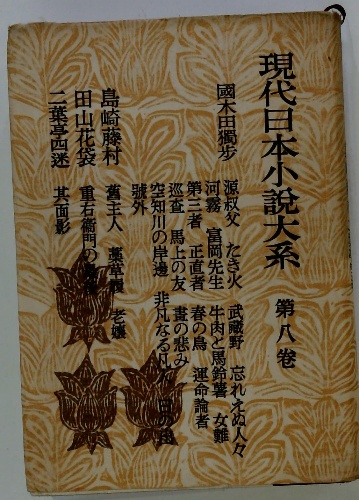 現代日本小說大系
第八卷
國木田獨步
源叔父 たき火 武藏野 忘れえぬ人々
河霧 富岡先生 牛肉と馬鈴薯 女難
第三者 正直者 春の鳥 運命論者
巡査 馬上の友 畫の悲み
空知川の岸邊 非凡なる凡人
號外
島崎藤村
舊主人 藁草履 老孃
田山花袋
重右衞門の
二葉亭四迷
其面影